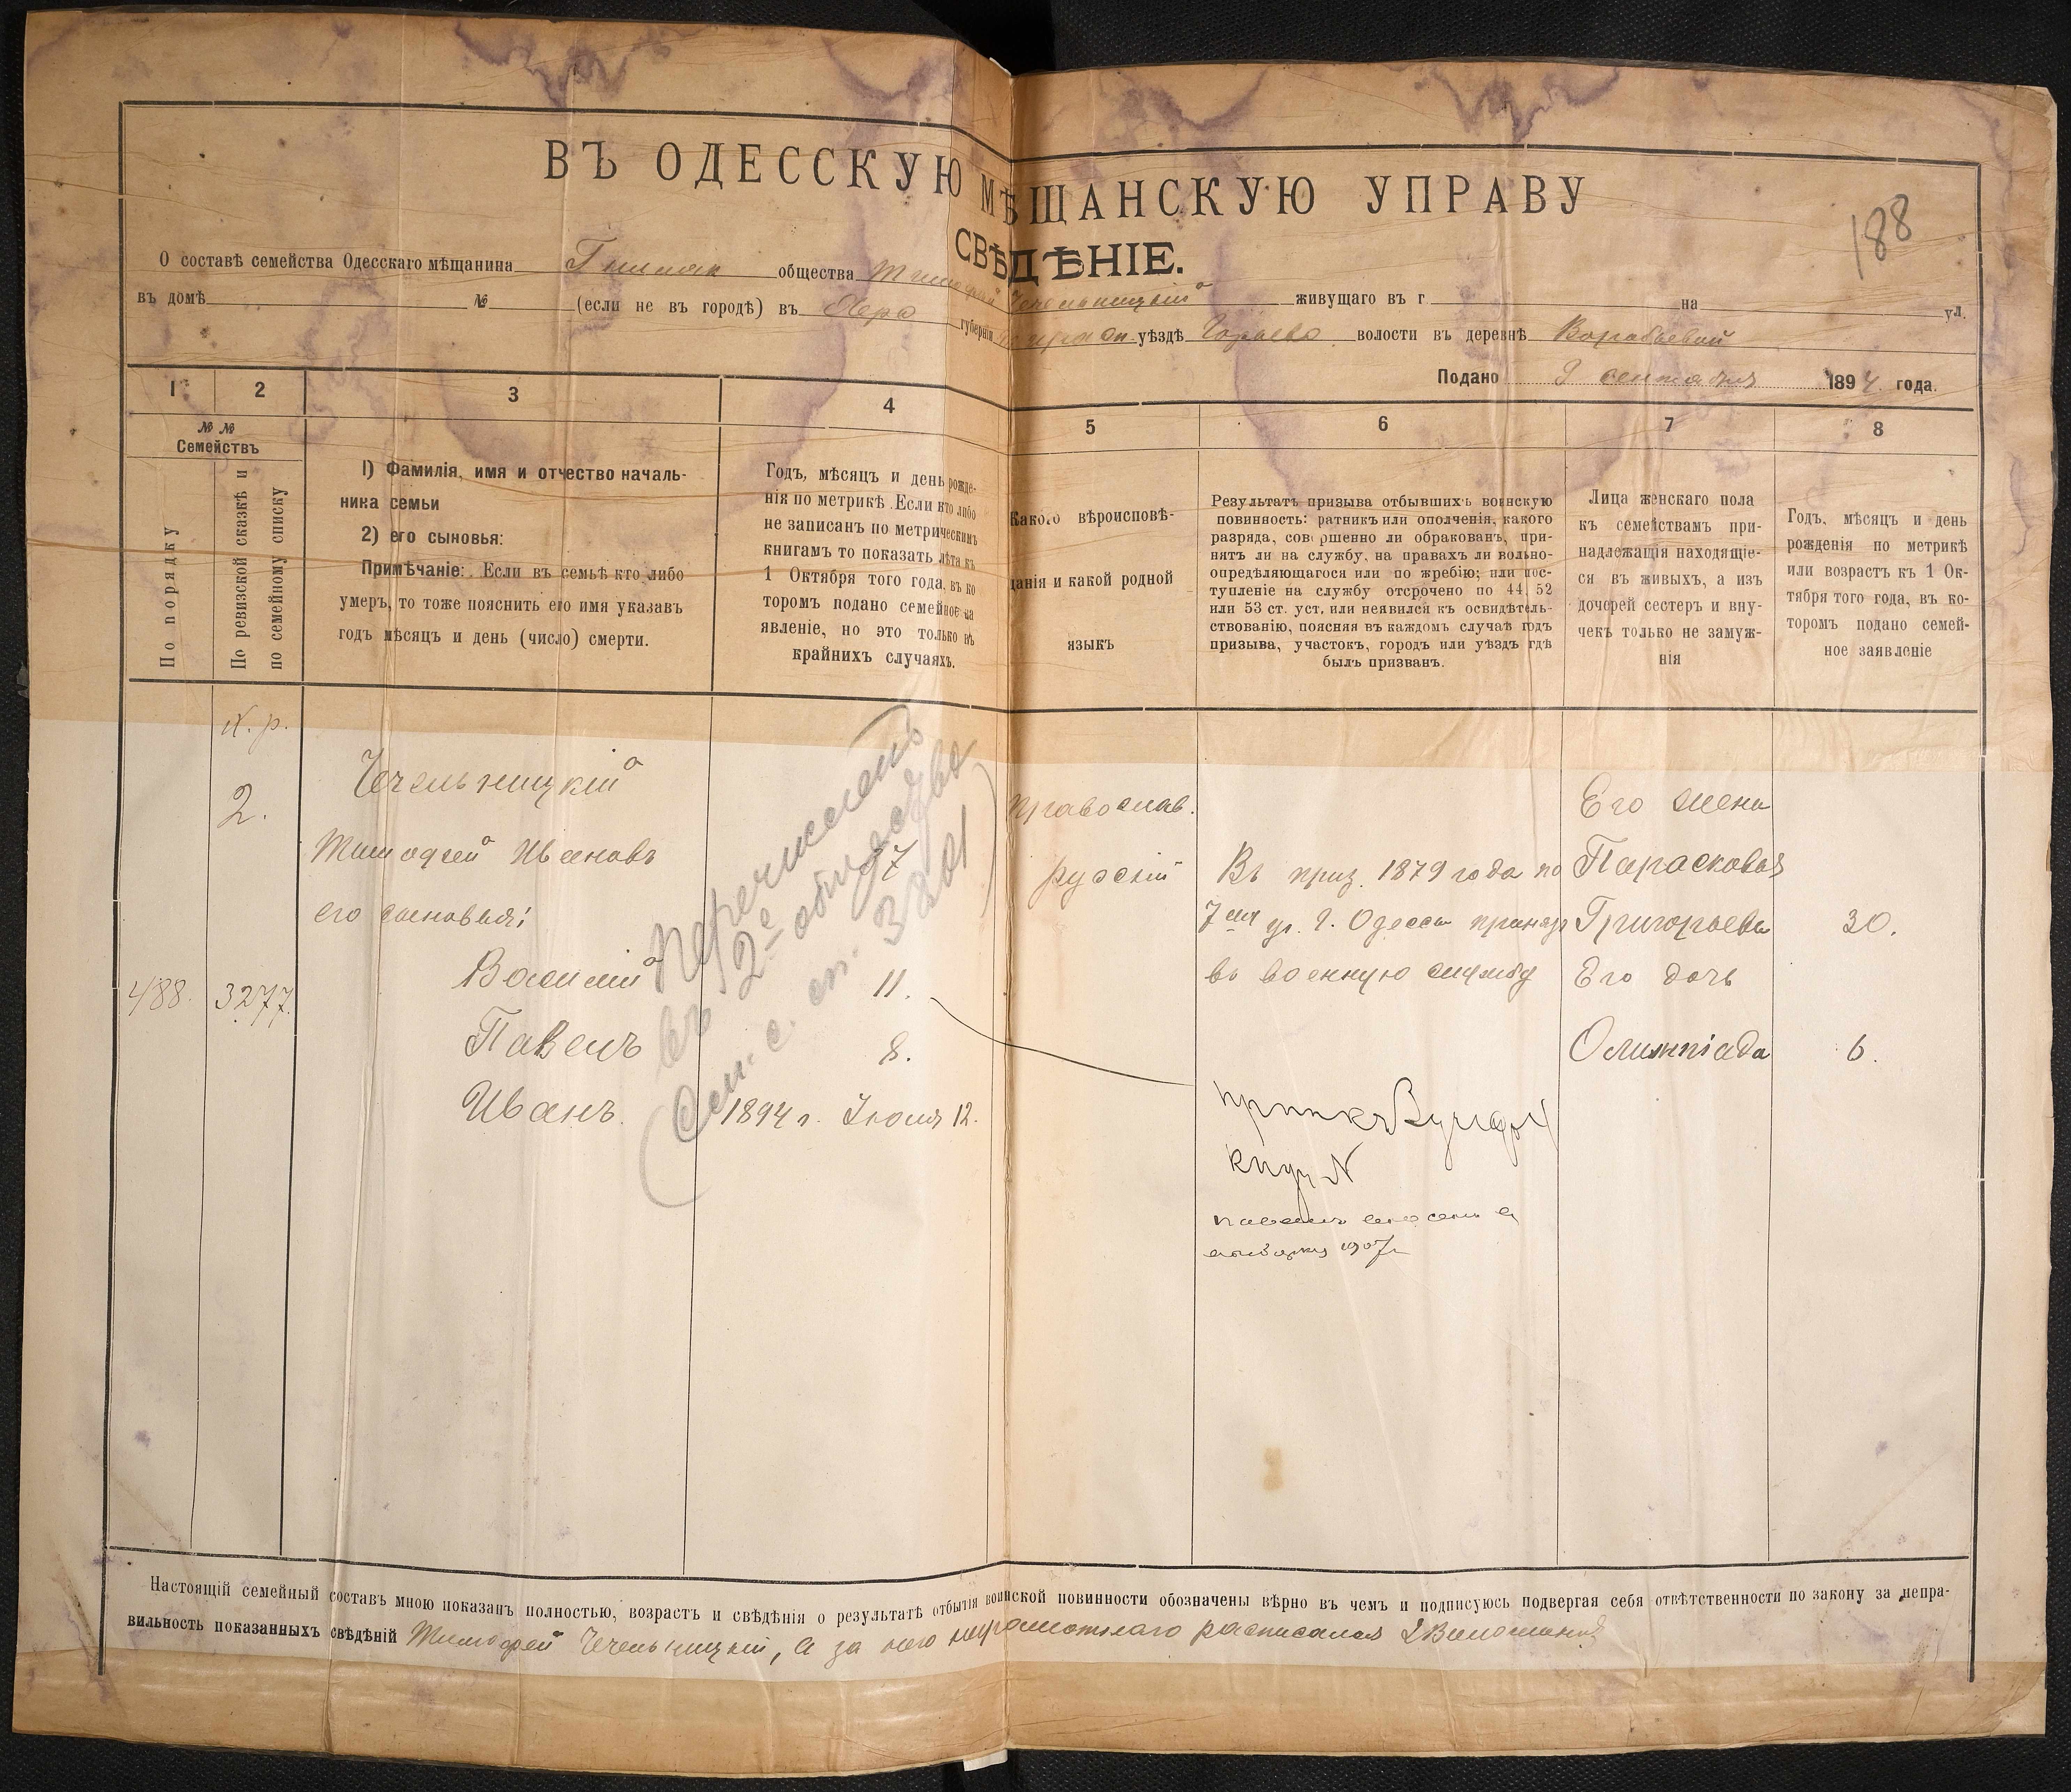 ВЪ ОДЕССКУЮ МѢЩАНСКУЮ УПРАВУ
188
СВѢДѢНІЕ.
О составѣ семейства Одесскаго мѣщанина общества Тимофей Чечельницкій живущаго въ г на ул.
въ домѣ № (если не въ городѣ) въ Херс губерніи уѣздѣ волости въ деревнѣ Воробьевой
Подано 9 сентября 1894 года.
1 2 3 4 5 6 7 8
№ №
Семействъ
По порядку
По ревизской сказкѣ и
по семейному списку
1) Фамилія, имя и отчество началь-
ника семьи
2) его сыновья:
Примѣчаніе: Если въ семьѣ кто либо
умеръ, то тоже пояснить его имя указавъ
годъ мѣсяцъ и день (число) смерти.
Годъ, мѣсяцъ и день рожде-
нія по метрикѣ. Если кто либо
не записанъ по метрическимъ
книгамъ то показать лѣта къ
1 Октября того года, въ ко
торомъ подано семейное за
явленіе, но это только въ
крайнихъ случаяхъ.
Какого вѣроисповѣ-
данія и какой родной
языкъ
Результатъ призыва отбывшихъ воинскую
повинность: ратникъ или ополченія, какого
разряда, совершенно ли обракованъ, при-
нятъ ли на службу, на правахъ ли вольно-
опредѣляющагося или по жребію; или пос-
тупленіе на службу отсрочено по 44, 52
или 53 ст. уст. или неявился къ освидѣтель-
ствованію, поясняя въ каждомъ случаѣ годъ
призыва, участокъ, городъ или уѣздъ гдѣ
былъ призванъ.
Лица женскаго пола
къ семействамъ при-
надлежащія находящіе-
ся въ живыхъ, а изъ
дочерей сестеръ и вну-
чекъ только не замуж-
нія
Годъ, мѣсяцъ и день
рожденія по метрикѣ
или возрастъ къ 1 Ок-
тября того года, въ ко-
торомъ подано семей-
ное заявленіе
X. р.
2.
488. 3277.
Чечельницкій
Тимофей Ивановъ 37
его сыновья:
Василій 11.
Павелъ 8.
Иванъ. 1894 г. Іюля 12.
Перечисленъ
въ 2е общество
(Сем. сп. 3201)
православ.
русскій
Въ приз. 1879 года по
7 му уч. г. Одессы принятъ
въ военную службу
Его жена
Парасковья
Григорьева 30.
Его дочь
Олимпіада 6.
1907 г
Настоящій семейный составъ мною показанъ полностью, возрастъ и свѣдѣнія о результатѣ отбытія воинской повинности обозначены вѣрно въ чемъ и подписуюсь подвергая себя отвѣтственности по закону за непра-
вильность показанныхъ свѣдѣній Тимофей Чечельницкій, а за него неграмотнаго расписался